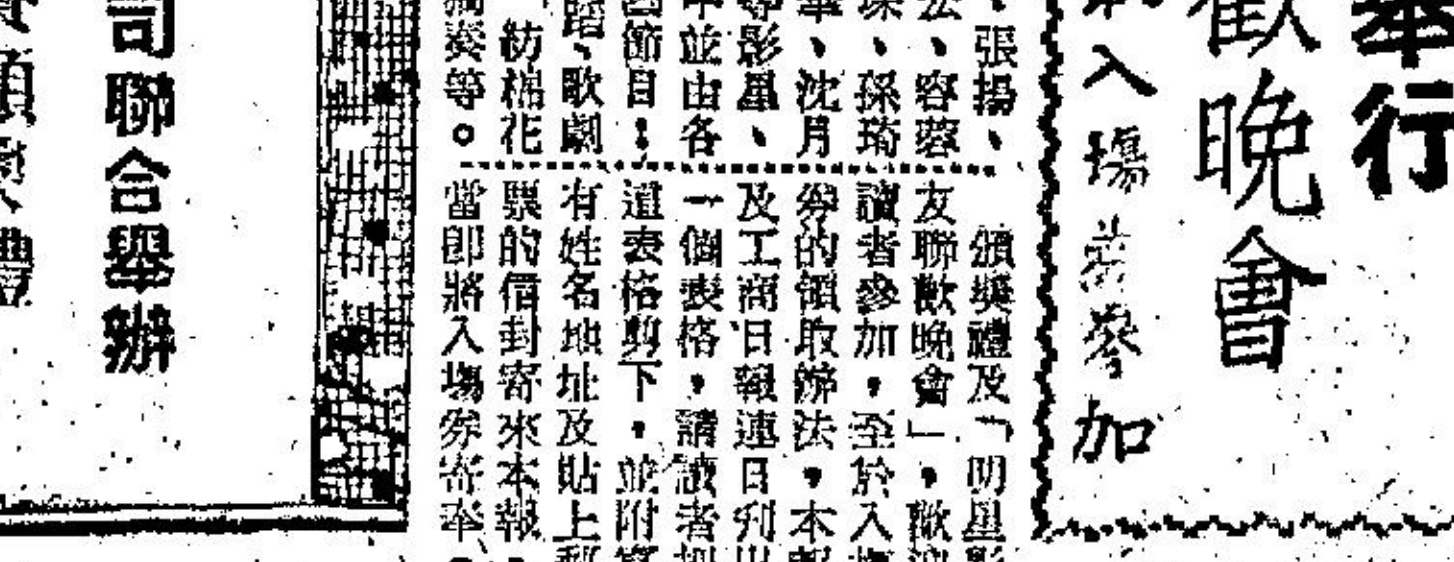 舉行
歡晚會
入場券參加
、張揚、
、容蓉、
、孫琦
華、沈月
等影星、
中並由各
節目!
踏、歌劇
紡棉花
奏等。
頒獎禮及「明星影
友聯歡晚會」,歡迎
讀者參加,至於入場
券的領取辦法,本報
及工商日報連日刊出
一個表格,請讀者把
這表格剪下,並附寫
有姓名地址及貼上郵
票的信封寄來本報,
當卽將入場券寄奉。
司聯合舉辦
禮